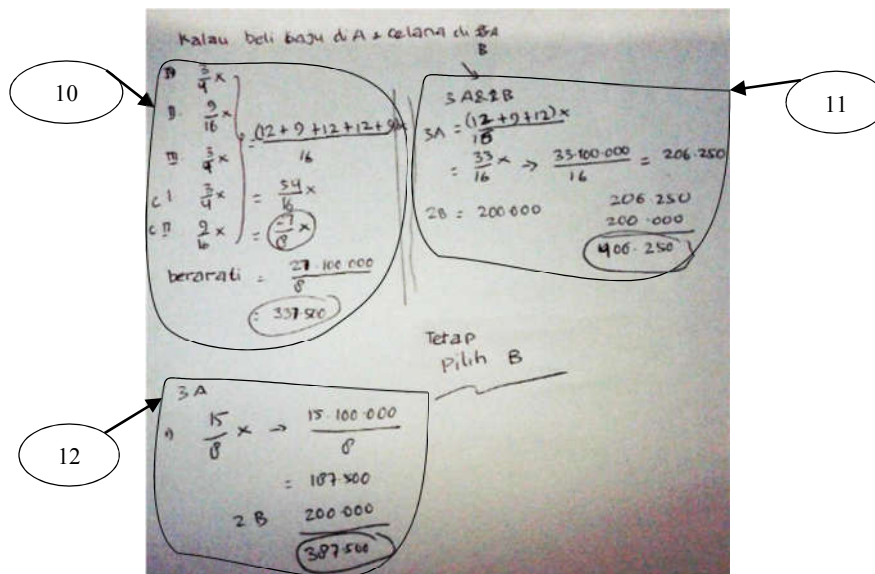 Kalau beli baju di A & celana di
B
10
I) 3/4 x
II. 9/16 x
III. 3/4 x
c I 3/4 x
c II 9/16 x
= (12 + 9 + 12 + 12 + 9)x / 16
= 54/16 x
= 27/8 x
berarati = 27.100.000 / 8
= 337.500
11
3 A & 2 B
3A = (12 + 9 + 12)x / 16
= 33/16 x → 33.100.000 / 16 = 206.250
2B = 200.000
206.250
200.000
406.250
Tetap
Pilih B
12
3 A
1) 15/8 x → 15.100.000 / 8
= 187.500
2 B 200.000
387.500